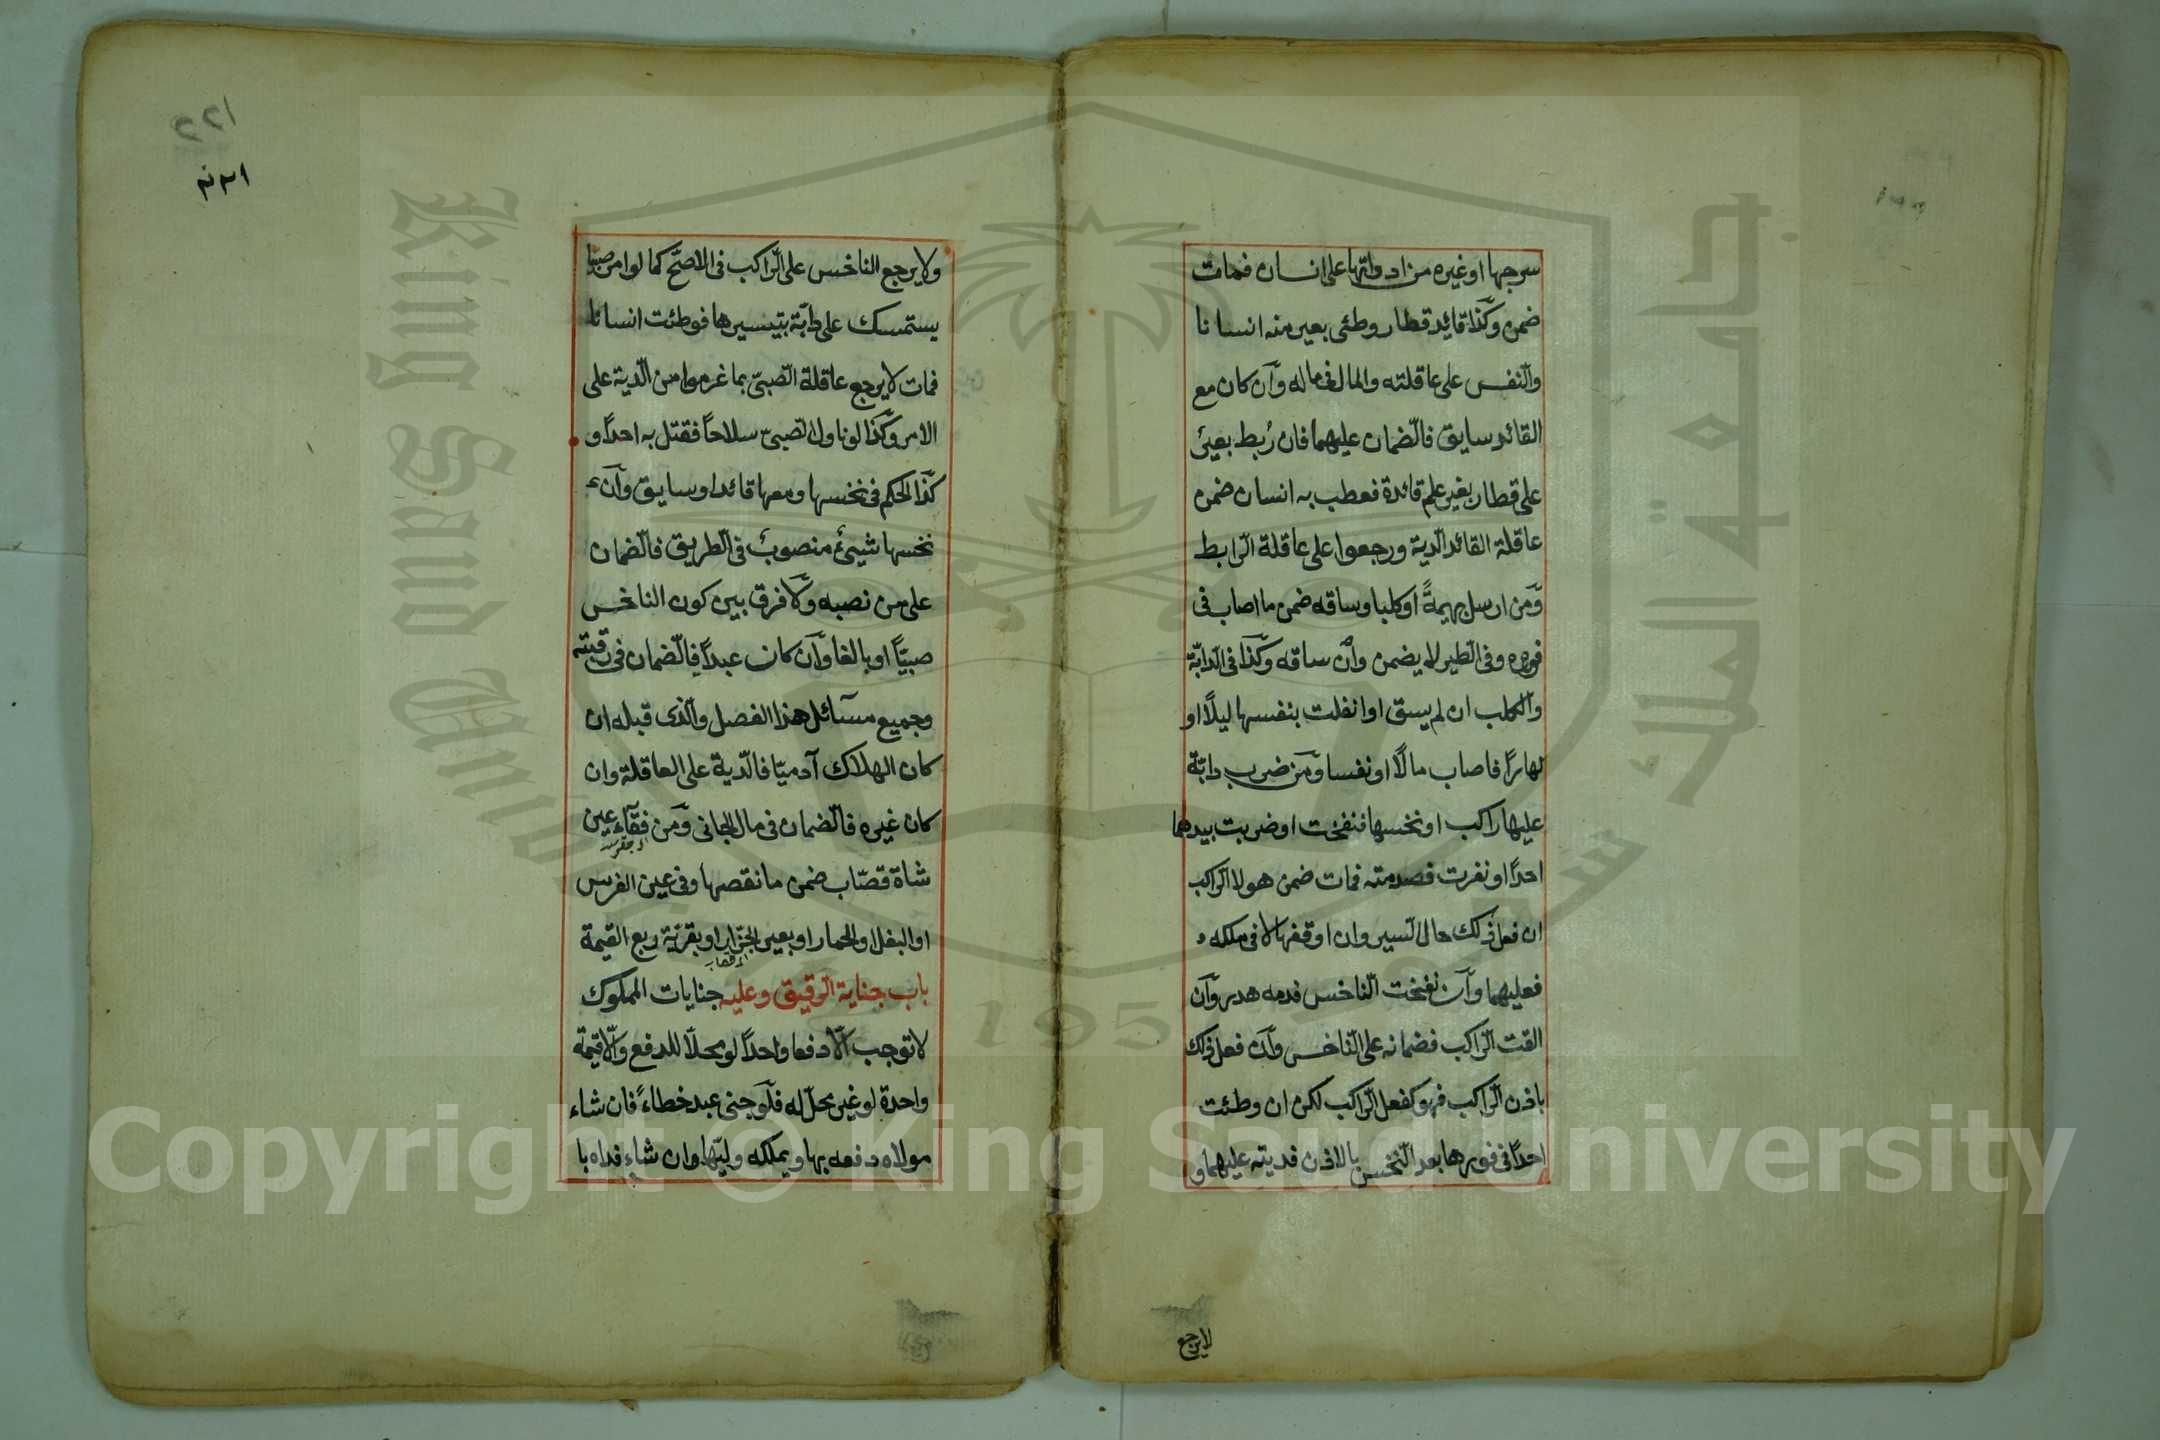 سرجها او غيره من ادواتها على انسان فمات
ضمن وكذا قائد قطار وطئ بعير منه انسانا
والنفس على عاقلته والمال في ماله وان كان مع
القائد سايق فالضمان عليهما فان ربط بعير
على قطار بغير علم قائدة فعطب به انسان ضمن
عاقلة القائد الدية ورجعوا على عاقلة الرابط
ومن ارسل بهيمة او كلبا وساقه ضمن ما اصاب في
فوره وفى الطير لا يضمن وان ساقه وكذا في الدابة
والكلب ان لم يسق او انفلت بنفسها ليلاً او
نهارًا فاصاب مالاً او نفسا ومن ضرب دابة
عليها راكب او نخسها فنفخت او ضربت بيدها
احدًا او نفرت فصدمته فمات ضمن هو لا الراكب
ان فعل ذلك حال السير وان اوقفها لا في ملكه
فعليهما وان نفخت الناخس فدمه هدر وان
القت الراكب فضمانه على الناخس وان فعل ذلك
باذن الراكب فهو كفعل الراكب لكن ان وطئت
احدًا في فورها بعد النخس بالاذن فديته عليهما و
لا يرجع
221
ولا يرجع الناخس على الراكب في الاصح كما لو امر صبيا
يستمسك على دابة بتيسيرها فوطئت انسانا
فمات لا يرجع عاقلة الصبى بما غرموا من الدية على
الامر وكذا لو ناول الصبى سلاحاً فقتل به احداً و
كذا الحكم في نخسها ومعها قائد او سايق وان
نخسها شيئ منصوب في الطريق فالضمان
على من نصبه ولا فرق بين كون الناخس
صبيّاً او بالغا وان كان عبداً فالضمان في رقبته
وجميع مسائل هذا الفصل والذى قبله ان
كان الهلاك آدميّا فالدية على العاقلة وان
كان غيره فالضمان في مال الجانى ومن فقاء عين
شاة قصّاب ضمن ما نقصها وفي عين الفرس
او البغل او الحمار او بعير الجزار او بقرته ربع القيمة
باب جناية الرقيق وعليه جنايات المملوك
لا توجب الا دفعا واحدًا لو محلاً للدفع والا قيمة
واحدة لو غير محلّ له فلو جنى عبد خطاءً فان شاء
مولاه دفعه بها ويملكه وليها وان شاء فداه با
King Saud University
جامعة الملك سعود
1957
Copyright © King Saud University